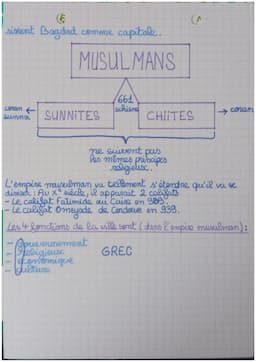 sissent Bagdad comme capitale.
MUSULMANS
661
schisme
coran sunna ← SUNNITES CHIITES → coran
ne suivent pas
les mêmes principes
religieux.
L'empire musulman va tellement s'étendre qu'il va se
diviser : Au Xe siècle, il apparait 2 califats
- Le califat Fatimide au Caire en 969.
- Le califat Omeyade de Cordoue en 939.
Les 4 fonctions de la ville sont (dans l'empire musulman) :
- gouvernement
- religieux
- économique
- culture
GREC